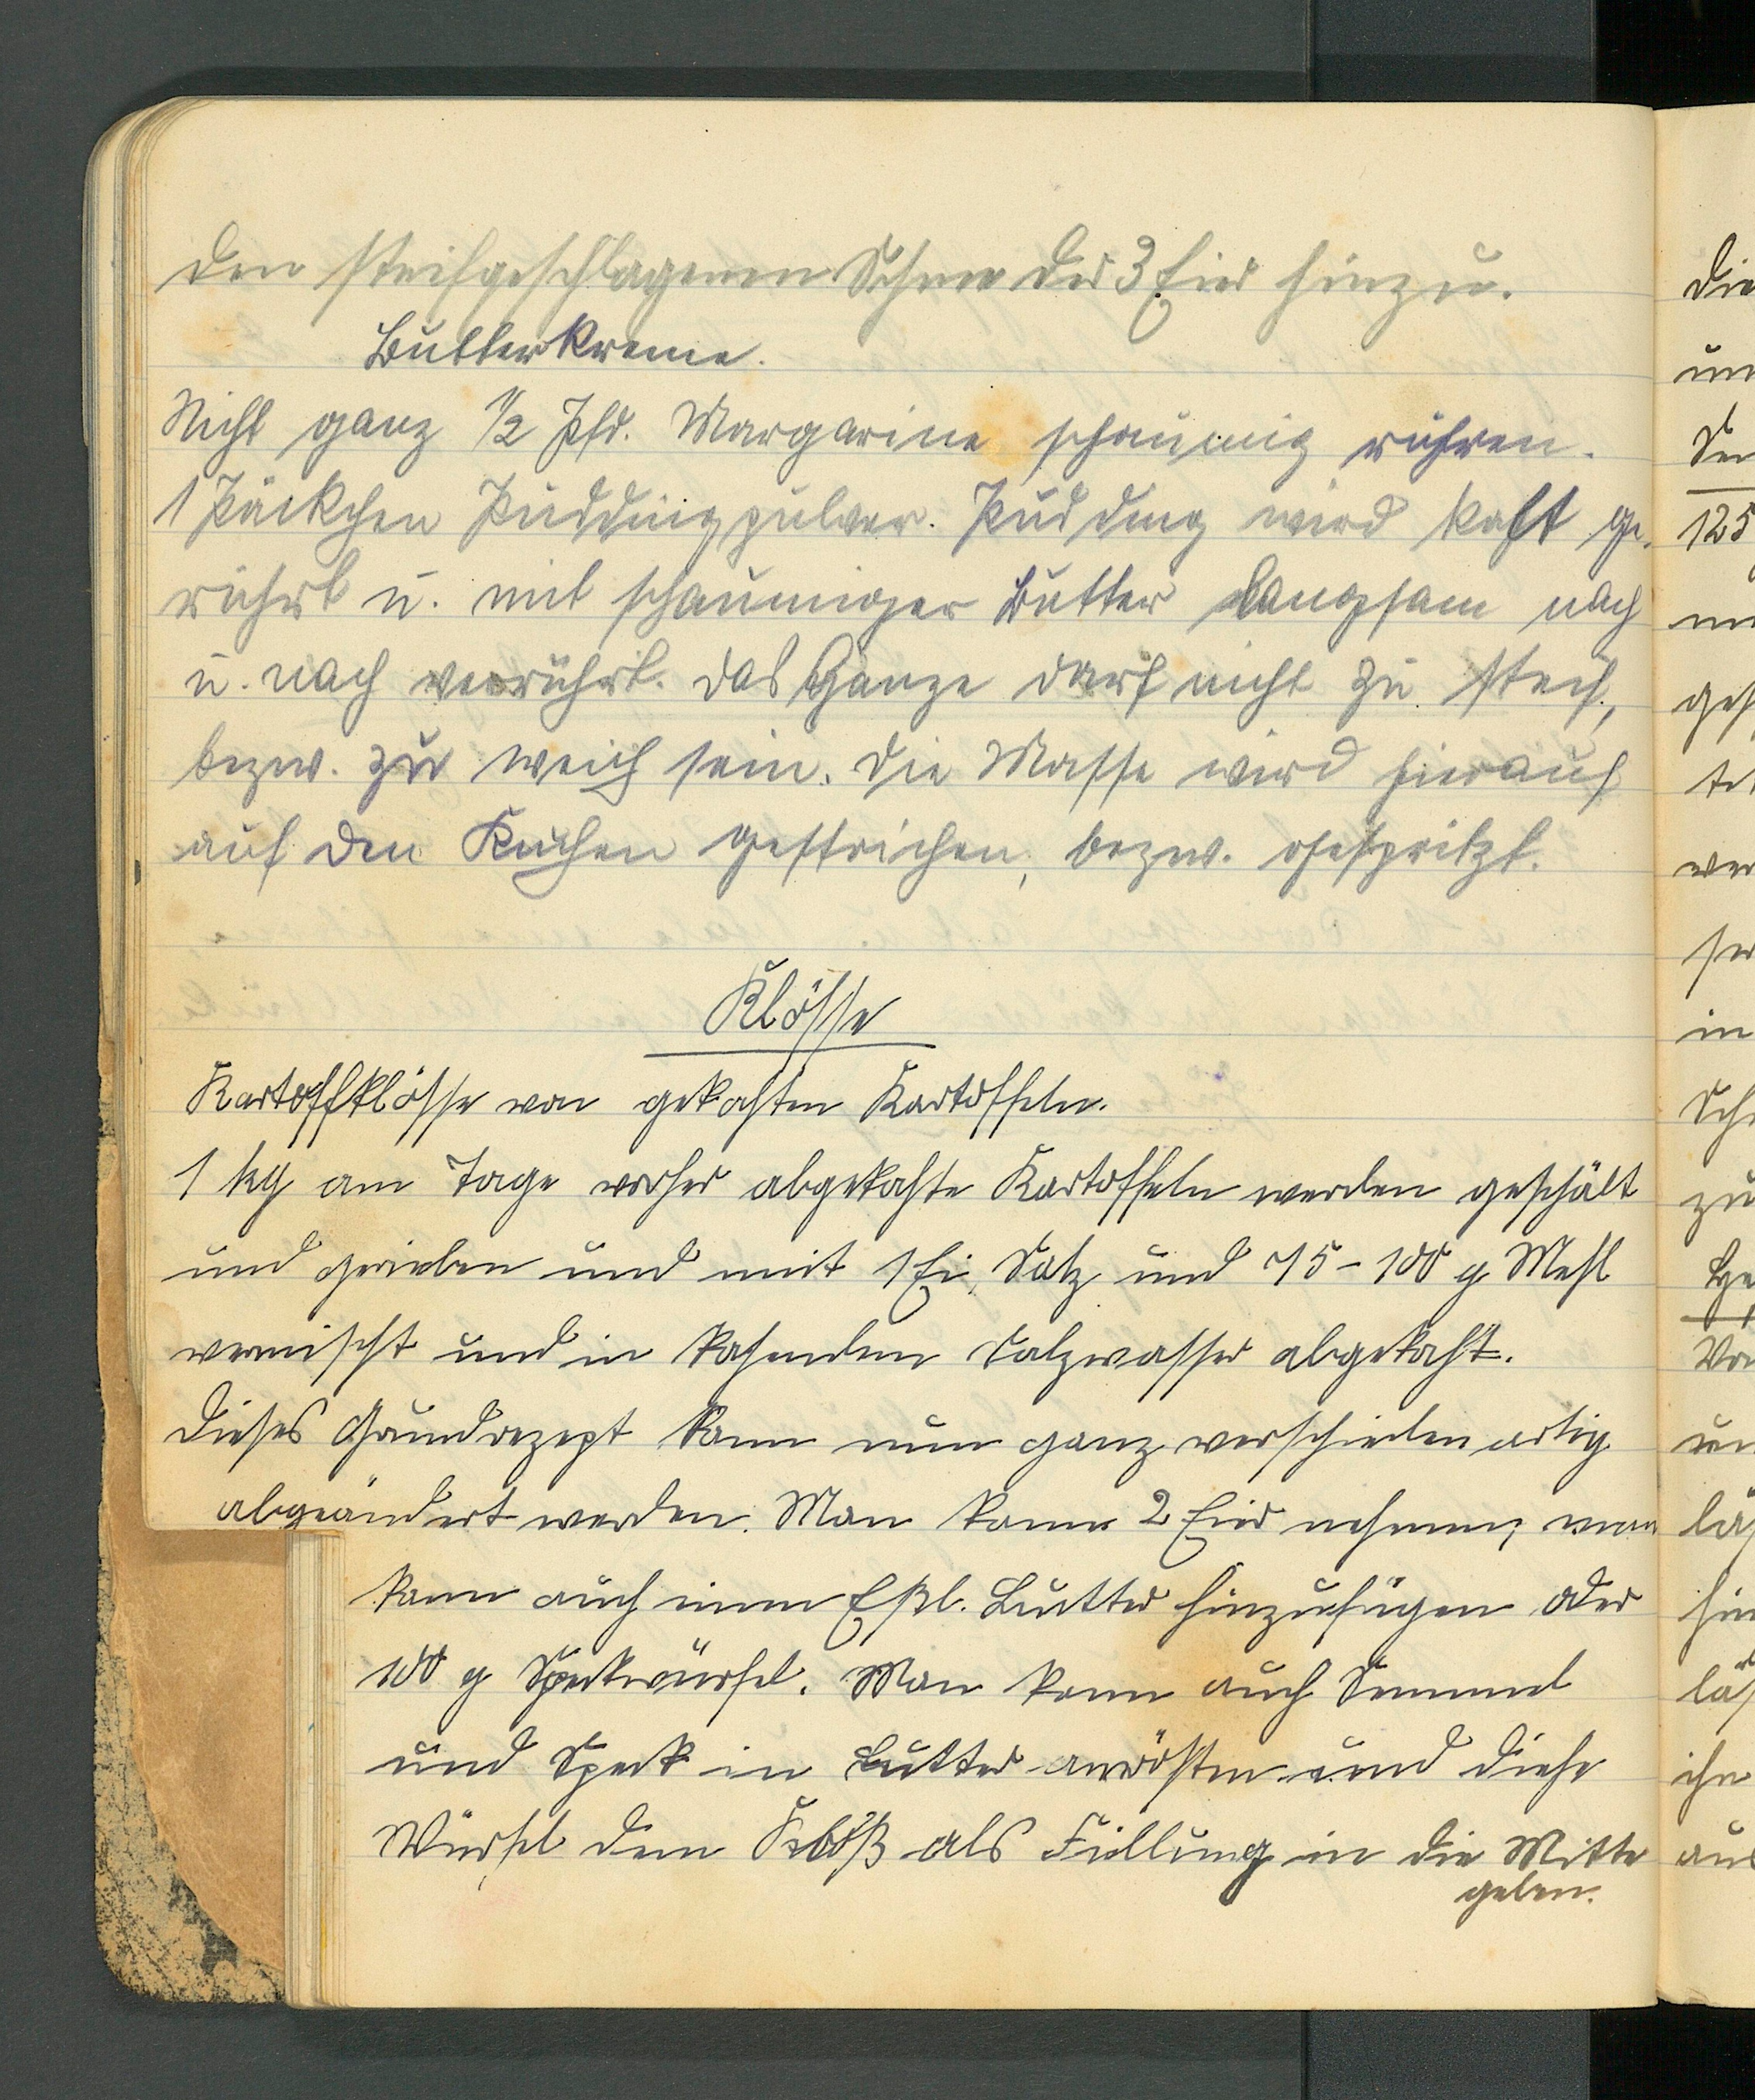 den steifgeschlagenen Schnee der 3 Eier hinzu.
Butterkreme.
Nicht ganz 1/2 Pfd. Margarine schaumig rühren.
1 Päckchen Puddingpulver. Pudding wird kalt ge-
rührt u. mit schaumiger Butter langsam nach
u. nach verrührt. Das Ganze darf nicht zu steif,
bezw. zu weich sein. Die Masse wird hierauf
auf den Kuchen gestrichen, bezw. gespritzt.
Klösse
Kartoffklösse von gekochten Kartoffeln.
1 kg am Tage vorher abgekochte Kartoffeln werden geschält
und gerieben und mit 1 Ei, Salz und 75-100 g Mehl
vermischt und in kochendem Salzwasser abgekocht.
Dieses Grundrezept kann nun ganz verschiedenartig
abgeändert werden. Man kann 2 Eier nehmen, man
kann auch einen Eßl. Butter hinzufügen oder
100 g Speckwürfel. Man kann auch Semmel
und Speck in Butter anrösten und diese
Würfel dem Kloß als Füllung in die Mitte
geben.
die
un
125
ges
wer
in
zu
un
hin
ihn
aus